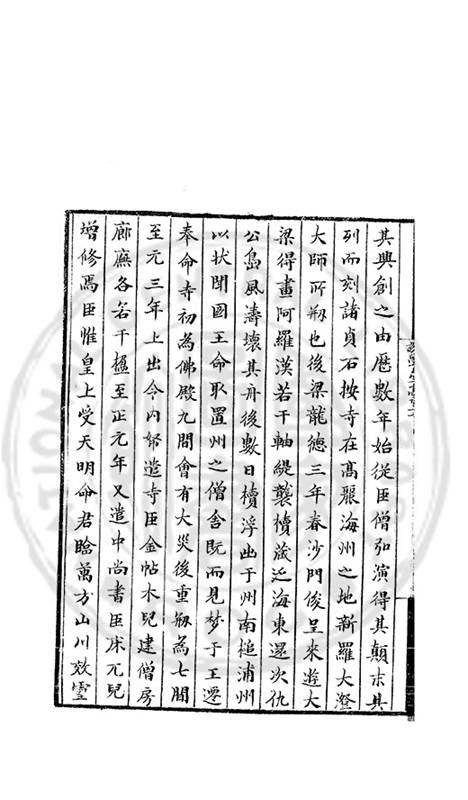 其興創之由歷數年始從臣僧弘演得其顛末其
列而刻諸貞石按寺在髙麗海州之地新羅大澄
大師所剏也後梁龍德三年春沙門俊呈來遊大
梁得畫阿羅漢若干軸緹襲櫝藏泛海東還次仇
公島風濤壞其舟後數日櫝浮出于州南槌浦州
以狀聞國王命取置州之僧舍既而見梦于王遷
奉命寺初為佛殿九間會有大災後重剏為七間
至元三年上出令內帑遣寺臣金帖木兒建僧房
廊廡各若干楹至正元年又遣中尚書臣床兀兒
增修焉臣惟皇上受天明命君臨萬方山川效靈